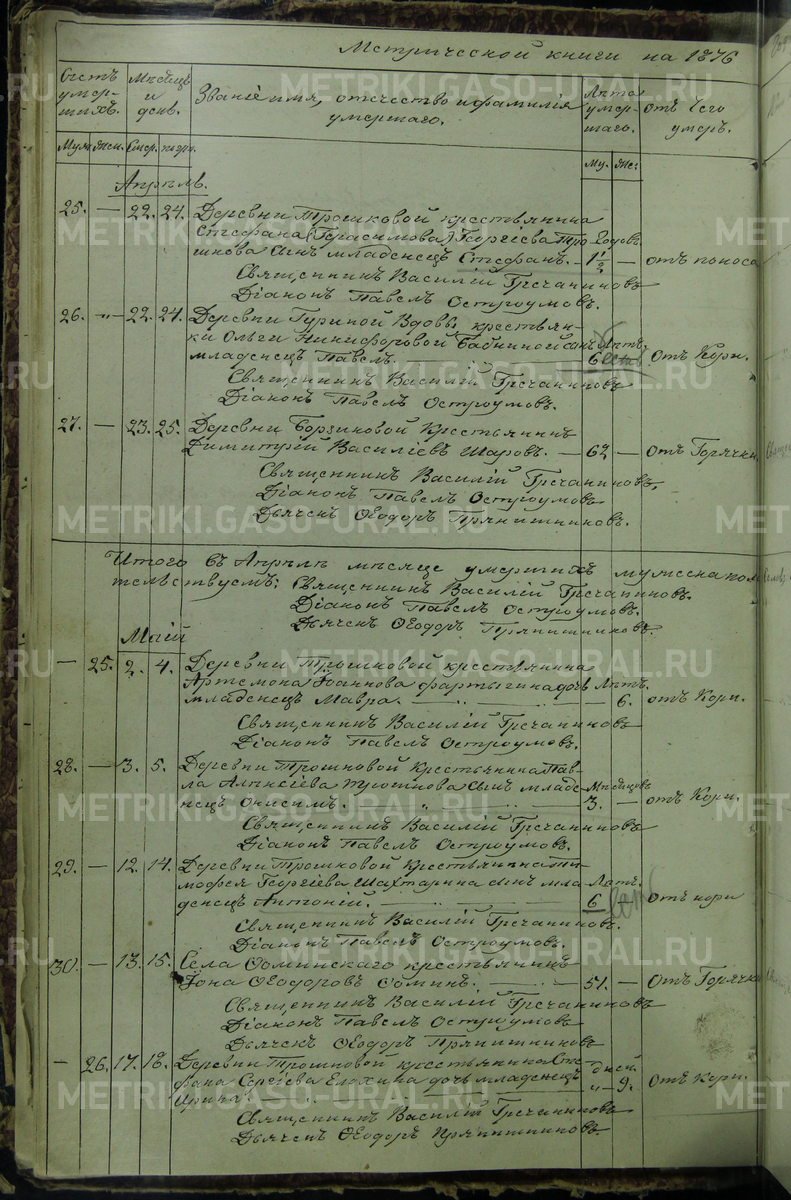 Метрической книги на 1876
Счетъ умершихъ. Мѣсяцъ и день. Званіе имя, отчество и фамилія умершаго. Лѣта умершаго. отъ чего умеръ.
Муж. Жен. Смер. погр. Му. Же:
Апрѣль.
25. — 22. 24. Деревни Трошковой крестьянина
Стефана (Герасимова) Георгіева Тро- Годовъ
шкова сынъ младенецъ Стефанъ. — 1½ — отъ поноса
Священникъ Василій Гречаниновъ
Діаконъ Павелъ Остроумовъ.
26. — 22. 24. Деревни Гуриной Вдовы крестьян-
ки Ольги Никифоровой Бабкиной сынъ Лѣтъ.
младенецъ Павелъ. — 6 Отъ Кори.
Священникъ Василій Гречаниновъ
Діаконъ Павелъ Остроумовъ.
27. — 23. 25. Деревни Борзиковой Крестьянинъ
Димитрій Василіевъ Шаровъ. — 62 — отъ Горячки
Священникъ Василій Гречаниновъ,
Діаконъ Павелъ Остроумовъ
Дьячекъ Ѳеодоръ Прянишниковъ.
Итого въ Апрѣлѣ мѣсяце умершихъ мужеска пол
тельствуемъ: Священникъ Василій Гречаниновъ.
Діаконъ Павелъ Остроумовъ.
Дьячекъ Ѳеодоръ Прянишниковъ.
Маій
— 25. 2. 4. Деревни Трошковой крестьянина
Артемона Іоаннова Фартыгина дочь Лѣтъ.
младенецъ Мавра. — 6. отъ Кори.
Священникъ Василій Гречаниновъ
Діаконъ Павелъ Остроумовъ.
28. — 3. 5. Деревни Трошковой Крестьянина Пав-
ла Алексіева Трошкова сынъ младе- Мѣсяцовъ
нецъ Онисимъ. 3. — отъ Кори.
Священникъ Василій Гречаниновъ
Діаконъ Павелъ Остроумовъ.
29. — 12. 14. Деревни Трошковой Крестьянина Ти-
мофея Георгіева Шахтарина сынъ мла- Лѣтъ.
денецъ Антоній. — 6 отъ кори
Священникъ Василій Гречаниновъ.
Діаконъ Павелъ Остроумовъ.
30. — 13. 15. Села Ѳоминскаго крестьянинъ
Іона Ѳеодоровъ Ѳоминъ. — 51. — Отъ Горячки
Священникъ Василій Гречаниновъ
Діаконъ Павелъ Остроумовъ
Дьячекъ Ѳеодоръ Прянишниковъ
— 26. 17. 18. Деревни Трошковой крестьянина Сте-
фана Сергіева Елохина дочь младенецъ дней
Ирина. " 9. отъ Кори.
Священникъ Василій Гречаниновъ
Дьячекъ Ѳеодоръ Прянишниковъ
METRIKI.GASO-URAL.RU